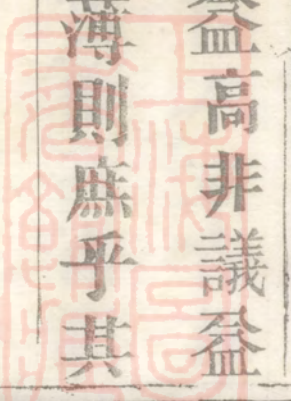 益高非議益
薄則庶乎其